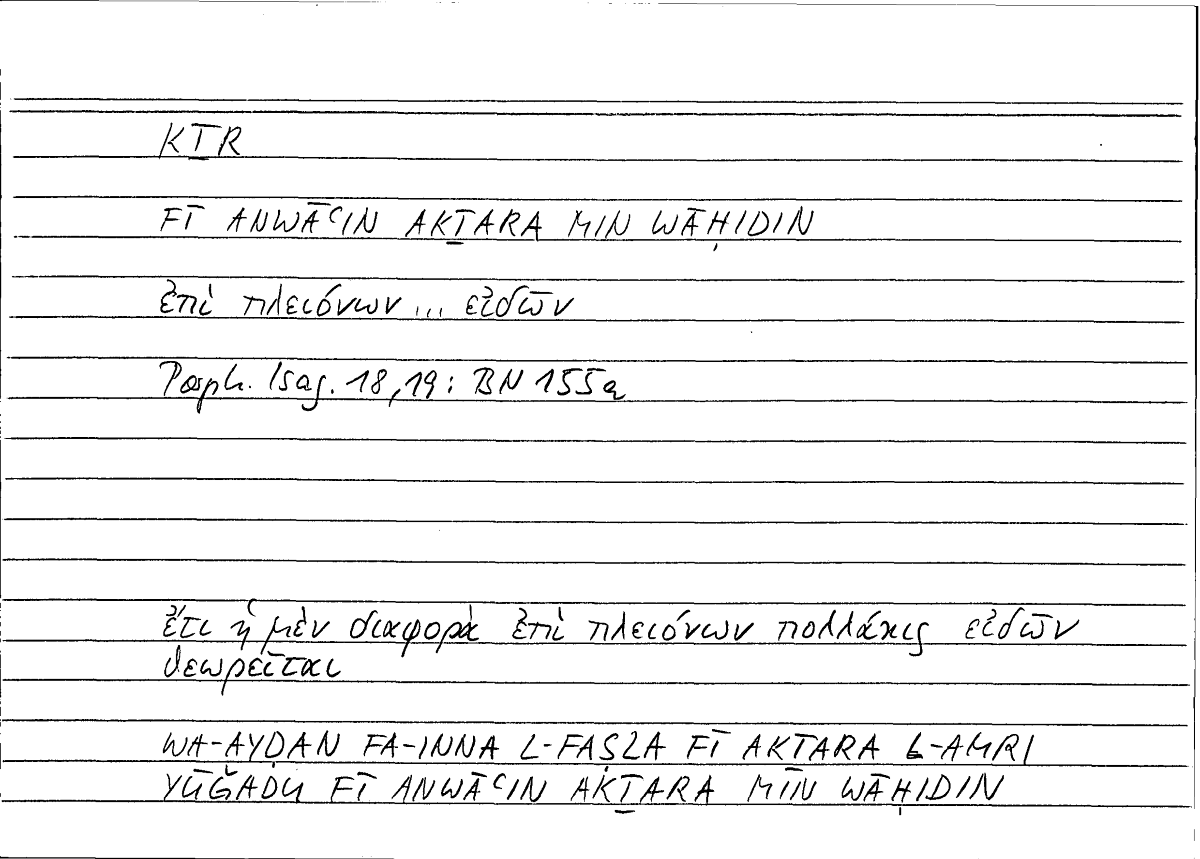 KṮR
FĪ ANWĀʿIN AKṮARA MIN WĀḤIDIN
ἐπὶ πλειόνων ... εἰδῶν
Porph. Isag. 18,19: BN 155a
ἔτι ἡ μὲν διαφορὰ ἐπὶ πλειόνων πολλάκις εἰδῶν
θεωρεῖται
WA-AYḌAN FA-INNA L-FAṢLA FĪ AKṮARA L-AMRI
YŪǦADU FĪ ANWĀʿIN AKṮARA MIN WĀḤIDIN